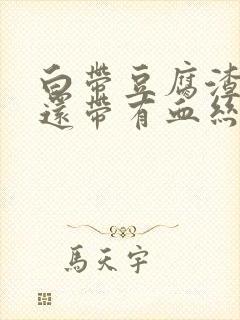 白帶豆腐渣
還帶有血絲
馬天宇